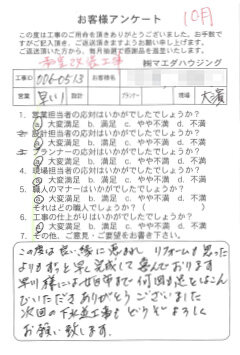 お客様アンケート
10月
この度は工事のご用命を頂きありがとうございました。お手数で
すがご記入頂き、ご返送頂きますようお願い申し上げます。
ご返送頂いた方から、毎月抽選で感謝品を進呈いたします。
和室改造工事
㈱マエダハウジング
工事ID 006-0513 お客様名
営業 早川 設計 プランナー 現場 大濱
1. 営業担当者の応対はいかがでしたでしょうか?
a 大変満足 b. 満足 c. やや不満 d. 不満
2. 設計担当者の応対はいかがでしたでしょうか?
a 大変満足 b. 満足 c. やや不満 d. 不満
3. プランナーの応対はいかがでしたでしょうか?
a 大変満足 b. 満足 c. やや不満 d. 不満
4. 現場担当者の応対はいかがでしたでしょうか?
a 大変満足 b. 満足 c. やや不満 d. 不満
5. 職人のマナーはいかがでしたでしょうか?
a 大変満足 b. 満足 c. やや不満 d. 不満
それはどの職人でしょうか?( )
6. 工事の仕上がりはいかがでしたでしょうか?
a 大変満足 b. 満足 c. やや不満 d. 不満
7. その他、ご意見・ご要望をお書き下さい。
この度は良い縁に恵まれ リフォームも思った
よりもずっと早く完成して喜んでおります
早川様には廿日市まで何回も足をはこん
でいただき ありがとうございました
次回の下水道工事も どうぞよろしく
お願い致します。